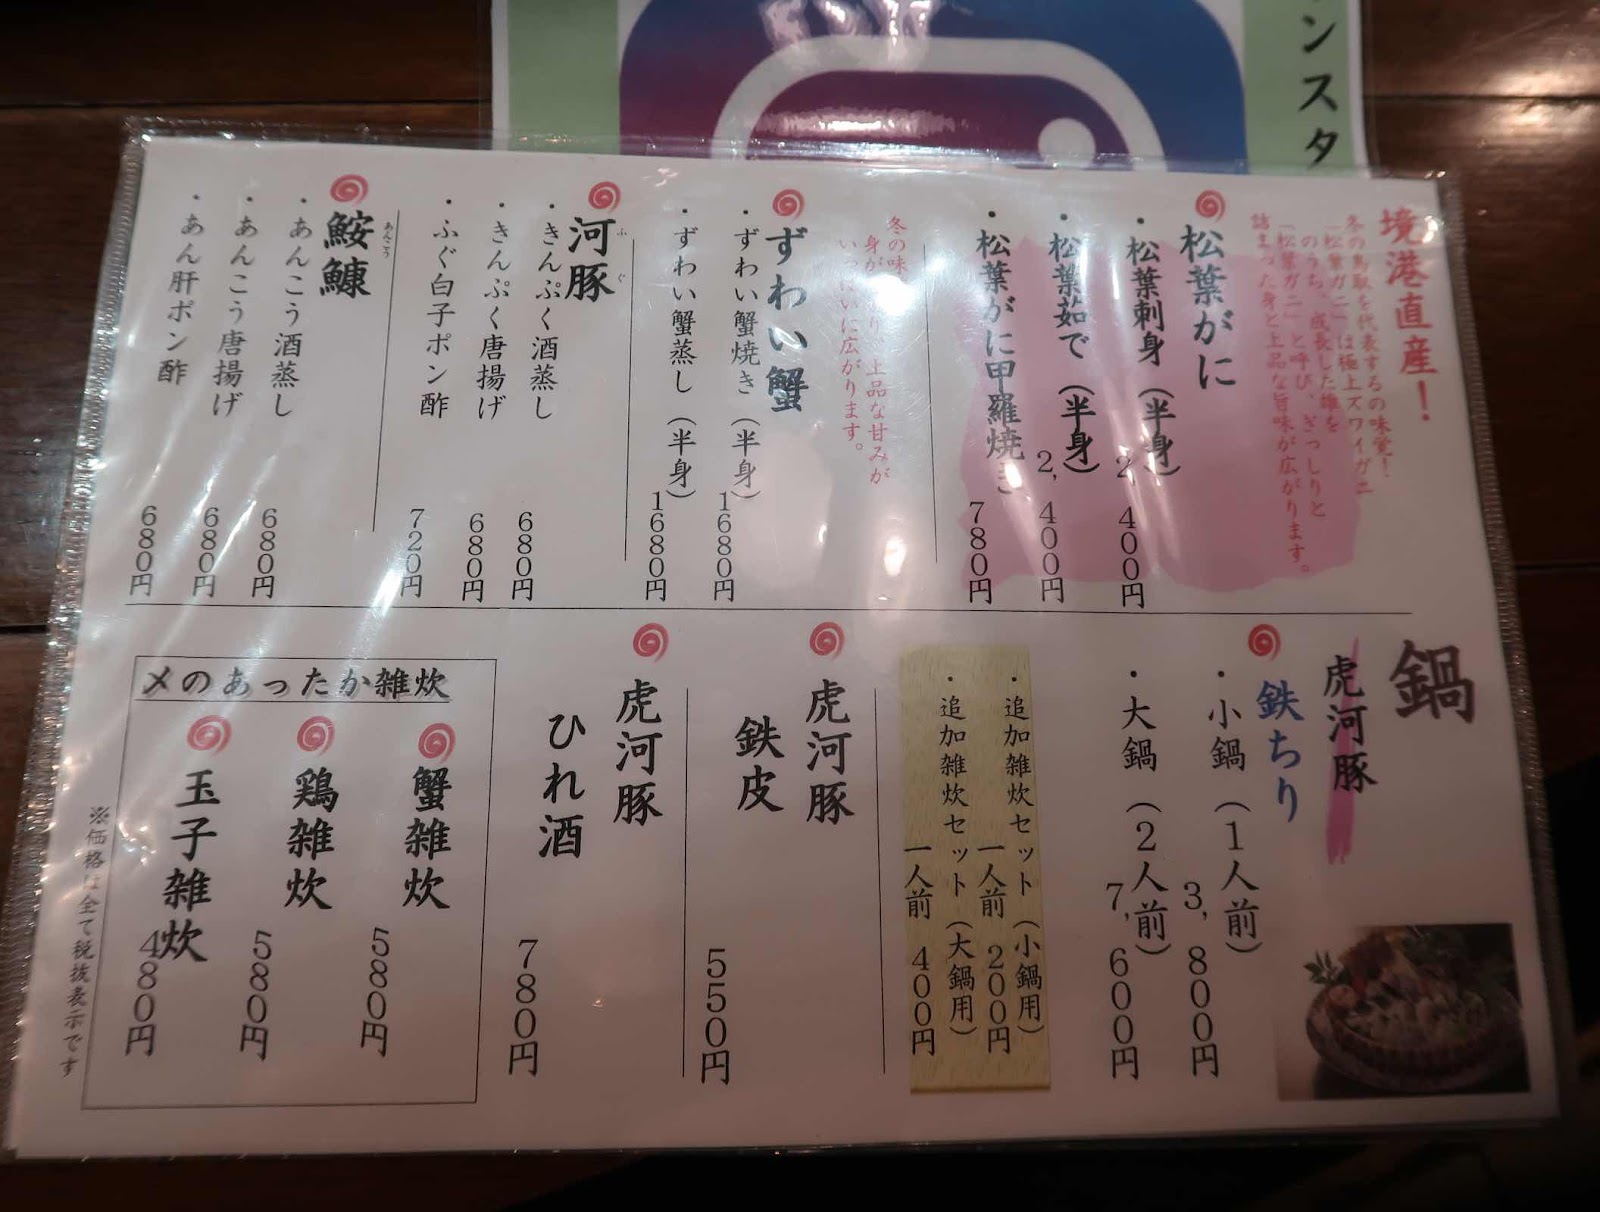 ンスタ
境港直産！
冬の鳥取を代表するの味覚！
「松葉ガニ」は極上ズワイガニ
のうち、成長した雄を
「松葉ガニ」と呼び、ぎっしりと
詰まった身と上品な旨味が広がります。
松葉がに
・松葉刺身（半身） 2,400円
・松葉茹で（半身） 2,400円
・松葉がに甲羅焼き 780円
冬の味
身が り、上品な甘みが
いっぱいに広がります。
ずわい蟹
・ずわい蟹焼き（半身） 1680円
・ずわい蟹蒸し（半身） 1680円
河豚
ふぐ
・きんぷく酒蒸し 680円
・きんぷく唐揚げ 680円
・ふぐ白子ポン酢 720円
鮟鱇
あんこう
・あんこう酒蒸し 680円
・あんこう唐揚げ 680円
・あん肝ポン酢 680円
鍋
虎河豚
鉄ちり
・小鍋（1人前） 3,800円
・大鍋（2人前） 7,600円
・追加雑炊セット（小鍋用）
一人前 200円
・追加雑炊セット（大鍋用）
一人前 400円
虎河豚
鉄皮 550円
虎河豚
ひれ酒 780円
〆のあったか雑炊
蟹雑炊 580円
鶏雑炊 580円
玉子雑炊 480円
※価格は全て税抜表示です